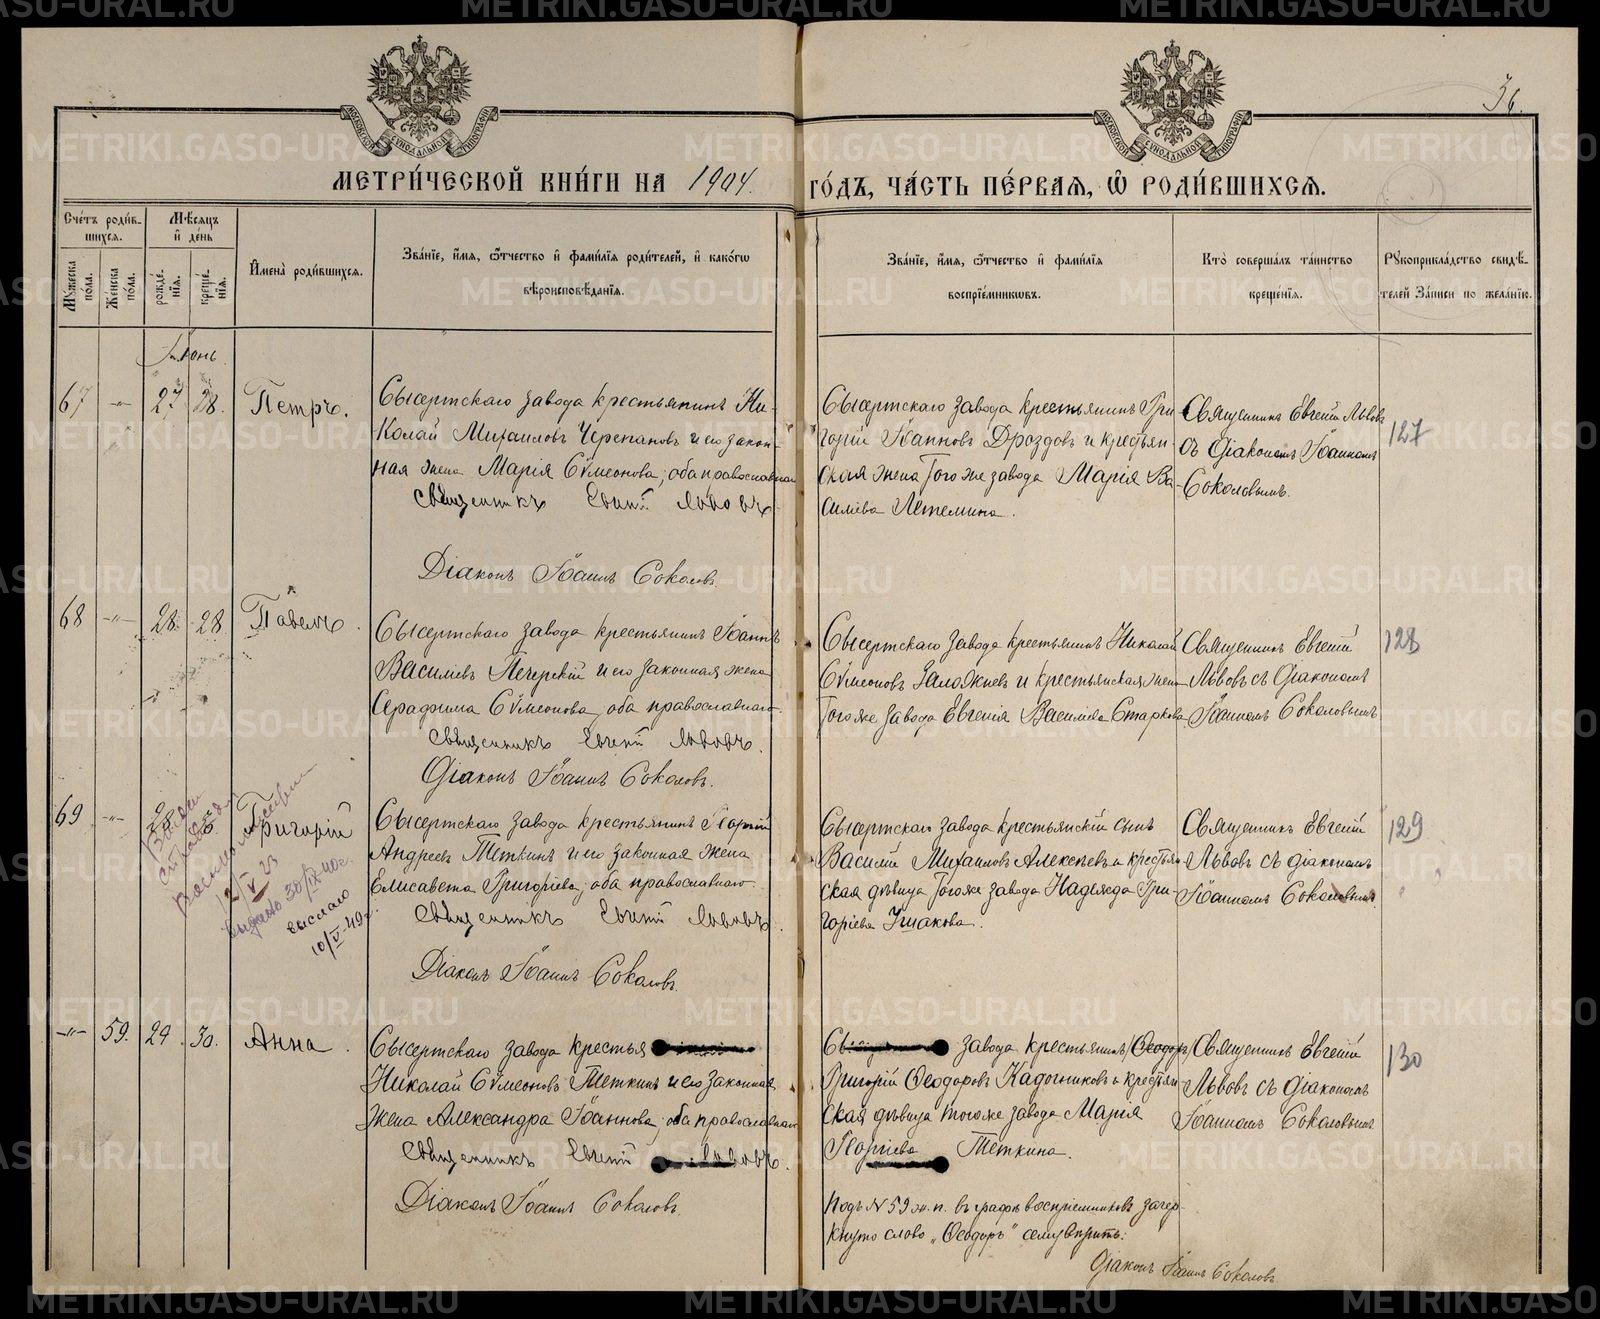 36.
МОСКОВСКОЙ СѴНОДАЛЬНОЙ ТИПОГРАФІИ
МОСКОВСКОЙ СѴНОДАЛЬНОЙ ТИПОГРАФІИ
МЕТРИ́ЧЕСКОЙ КНИ́ГИ НА 1904. ГО́ДЪ, ЧА́СТЬ ПЕ́РВАЯ, Ѽ РОДИ́ВШИХСЯ.
Сче́тъ роди́в-
шихся.
Мѣ́сяцъ
и҆ де́нь
Мꙋ́жеска по́ла.
Же́нска по́ла.
рожде́-
нїя.
креще́-
нїя.
И҆мена̀ роди́вшихся.
Зва́нїе, и҆́мя, ѻ҆́тчество и҆ фами́лїя роди́телей, и҆ како́гѡ
вѣроисповѣ́данїя.
Зва́нїе, и҆́мя, ѻ҆́тчество и҆ фами́лїя
воспрїе́мникѡвъ.
Кто̀ соверша́лъ та́инство
креще́нїя.
Рꙋкоприкла́дство свидѣ́-
телей За́писи по жела́нїю.
Іюнь
67 -"- 27 28. Петръ.
Сысертскаго завода крестьянинъ Ни-
колай Михаиловъ Черепановъ и его закон-
ная жена Марія Сѵмеонова, оба православнаго
священникъ Евгеній Львовъ
Діаконъ Іоаннъ Соколовъ
Сысертскаго завода крестьянинъ Гри-
горій Іоанновъ Дроздовъ и крестьян-
ская жена того же завода Марія Ва-
силіева Летемина.
Священникъ Евгеній Львовъ
съ Діакономъ Іоанномъ
Соколовымъ.
127
68 -"- 28. 28 Павелъ.
Сысертскаго завода крестьянинъ Іоаннъ
Василіевъ Печерскій и его законная жена
Серафима Сѵмеонова, оба православнаго.
священникъ Евгеній Львовъ.
Діаконъ Іоаннъ Соколовъ.
Сысертскаго завода крестьянинъ Николай
Сѵмеоновъ Заложневъ и крестьянская жена
того же завода Евгенія Василіева Старкова
Священникъ Евгеній
Львовъ съ Діакономъ
Іоанномъ Соколовымъ
128
69 -"- 28 Григорій
12/V 23
выдано 30/IX-40 г.
выслано
10/V-49 г.
Сысертскаго завода крестьянинъ Георгій
Андреевъ Теткинъ и его законная жена
Елисавета Григоріева, оба православнаго.
священникъ Евгеній Львовъ.
Діаконъ Іоаннъ Соколовъ.
Сысертскаго завода крестьянскій сынъ
Василій Михаиловъ Алексѣевъ и крестьян-
ская дѣвица того же завода Надежда Гри-
горіева Ушакова.
Священникъ Евгеній
Львовъ съ діакономъ
Іоанномъ Соколовымъ.
129
-"- 59. 29 30. Анна.
Сысертскаго завода крестья
Николай Сѵмеоновъ Теткинъ и его законная
жена Александра Іоаннова, оба православнаго
священникъ Евгеній Львовъ.
Діаконъ Іоаннъ Соколовъ.
завода крестьянинъ (Ѳеодоръ)
Григорій Ѳеодоровъ Кадочниковъ и крестьян-
ская дѣвица того же завода Марія
Георгіева Теткина.
Священникъ Евгеній
Львовъ съ Діакономъ
Іоанномъ Соколовымъ
130
Подъ № 59 ж. п. въ графѣ воспріемниковъ зачер-
кнуто слово „Ѳеодоръ" сему вѣрить:
Діаконъ Іоаннъ Соколовъ
METRIKI.GASO-URAL.RU